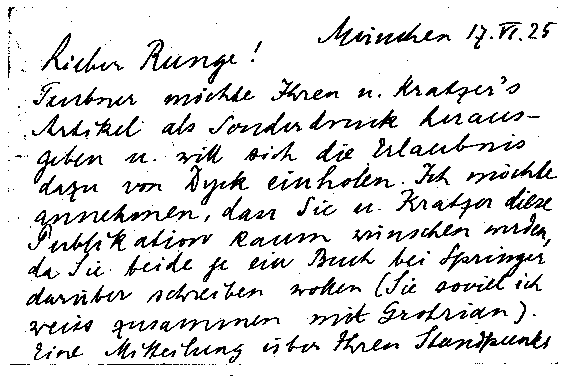 München 17. VI. 25
Lieber Runge!
Teubner möchte Ihren u. Kratzer's
Artikel als Sonderdruck heraus-
geben u. will sich die Erlaubnis
dazu von Dyck einholen. Ich möchte
annehmen, dass Sie u. Kratzer diese
Publikation kaum wünschen werden,
da Sie beide je ein Buch bei Springer
darüber schreiben wollen (Sie soviel ich
weiss zusammen mit Grotrian).
Eine Mitteilung über Ihren Standpunkt